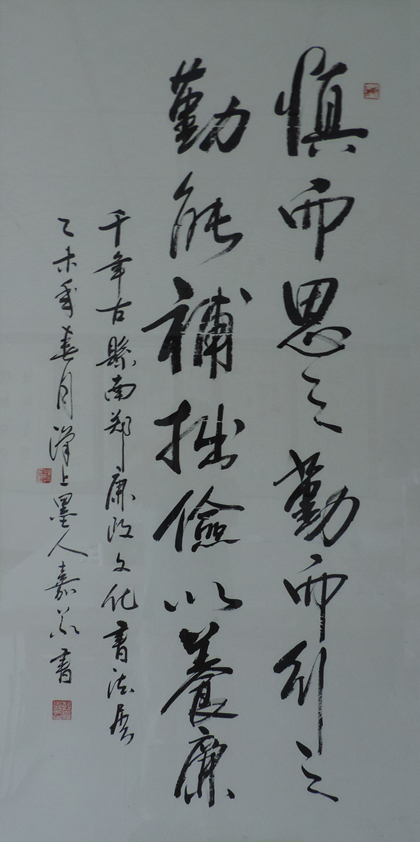 慎而思之勤而行之
勤能補拙儉以養廉
千年古縣南郑廉政文化書法展
乙未季春月漢上墨人嘉書